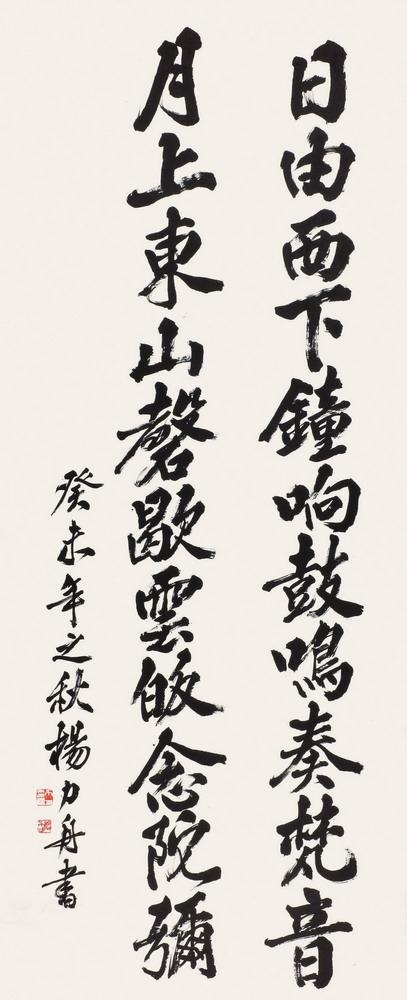 日由西下鐘响鼓鳴奏梵音
月上東山磬歇雲皈念陀彌
癸未年之秋楊力舟書